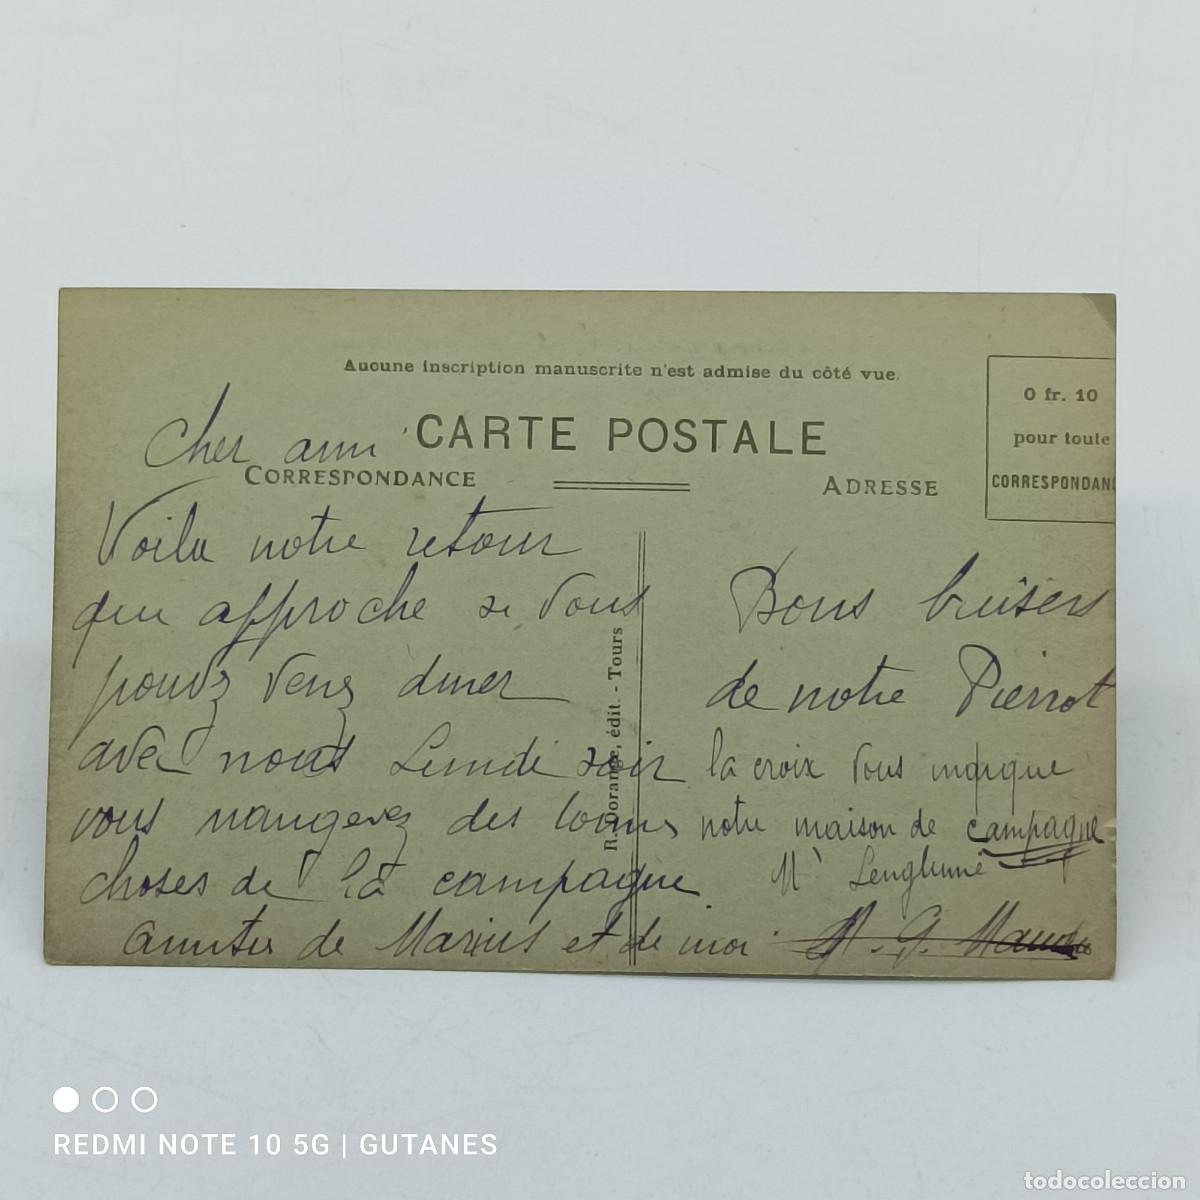 Aucune inscription manuscrite n'est admise du côté vue.
0 fr. 10
pour toute
CORRESPONDANC
CARTE POSTALE
CORRESPONDANCE
ADRESSE
Cher ami
Voila notre retour
qui approche si vous
pouvez venez diner
avec nous Lundi soir
vous mangerez des bonnes
choses de la campagne
amities de Marius et de moi
R. Dorange, édit. - Tours
Bons baisers
de notre Pierrot
la croix vous indique
notre maison de campagne
REDMI NOTE 10 5G | GUTANES
todocoleccion